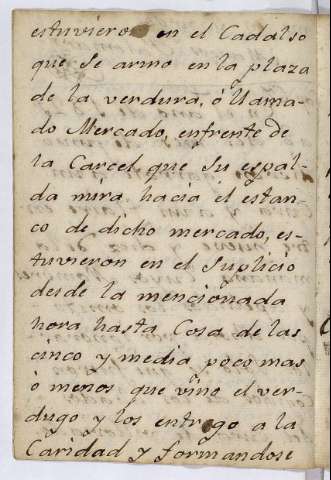 estuvieron en el Cadalso
que se armo en la plaza
de la verdura, ó llama-
do Mercado, enfrente de
la Carcel que su espal-
da mira hacia el estan-
co de dicho mercado, es-
tuvieron en el suplicio
desde la mencionada
hora hasta Cosa de las
cinco y media poco mas
ó menos que vino el ver-
dugo y los entrego a la
Caridad y formandose